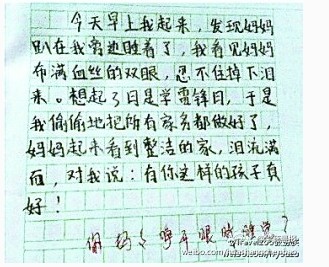 今天早上我起来，发现妈妈
趴在我旁边睡着了，我看见妈妈
布满血丝的双眼，忍不住掉下泪
来。想起了日是学雷锋日，于是
我偷偷地把所有家务都做好了，
妈妈起来看到整洁的家，泪沆满
面，对我说：有你这样的孩子真
好！
你妈 睁开眼睛睡觉？